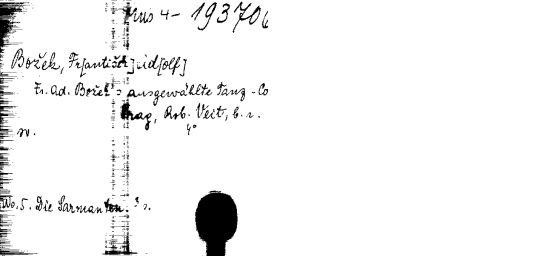 Mus 4- 193706
Božek, Fr[antišek] Ad[olf]
Fr. Ad. Božek's ausgewählte Tanz-Co
Prag, Rob. Veit, b. r.
4°
No. 5. Die Sarmanten.